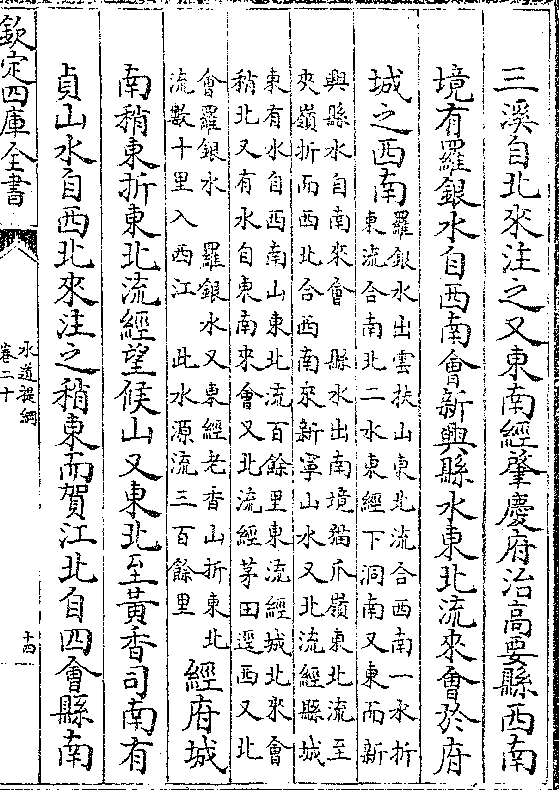 三溪自北來注之又東南經肇慶府治高要縣西南
境有羅銀水自西南會新興縣水東北流來會於府
城之西南
羅銀水出雲扶山東北流合西南一水折
東流合南北二水東經下洞南又東而新
興縣水自南來會　縣水出南境貓爪嶺東北流至
夾嶺折而西北合西南來新寧山水又北流經縣城
東有水自西南山東北流百餘里東流經城北來會
稍北又有水自東南來會又北流經茅田逕西又北
會羅銀水　羅銀水又東經老香山折東北
流數十里入西江　此水源流三百餘里
經府城
南稍東折東北流經望候山又東北至黃香司南有
貞山水自西北來注之稍東而賀江北自四會縣南
欽定四庫全書
水道提綱
卷二十
十四